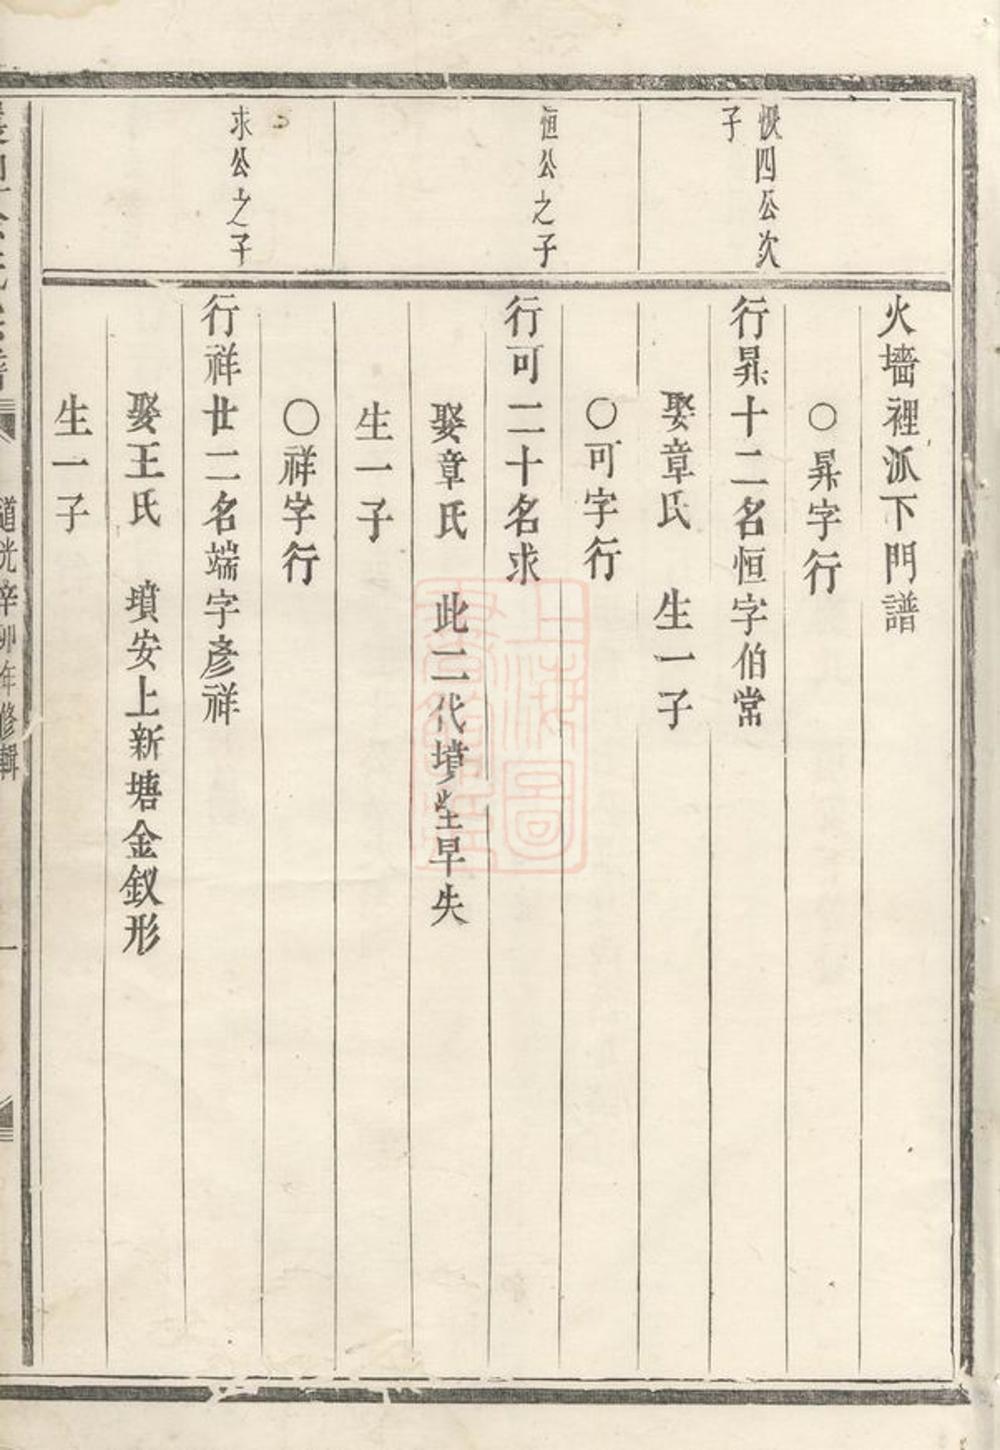 火墻裡泒下門譜
○昇字行
四公次
子
行昇十二名恒字伯常
娶章氏　生一子
○可字行
恒公之子
行可二十名求
娶章氏　此二代墳塋早失
生一子
○祥字行
求公之子
行祥廿二名端字彥祥
娶王氏　墳安上新塘金釵形
生一子
道光辛卯年修輯
一
上海圖
書館藏